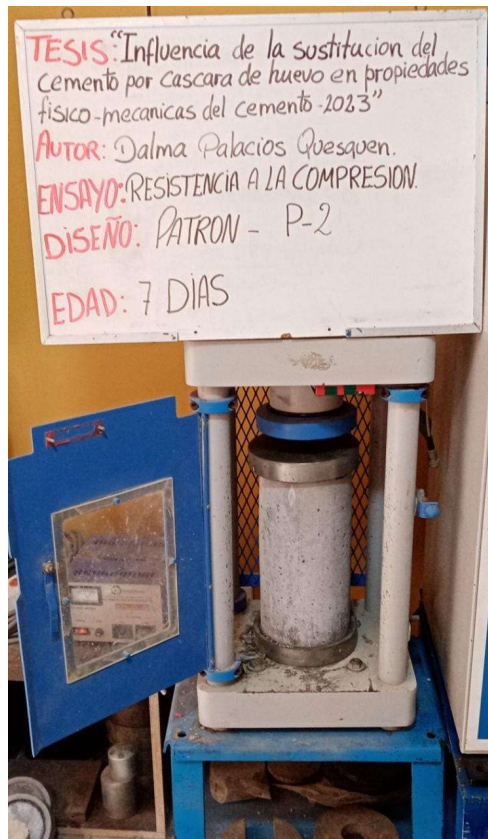 TESIS: "Influencia de la sustitucion del
cemento por cascara de huevo en propiedades
fisico-mecanicas del cemento-2023"
AUTOR: Dalma Palacios Quesquen.
ENSAYO: RESISTENCIA A LA COMPRESION.
DISEÑO: PATRON - P-2
EDAD: 7 DIAS